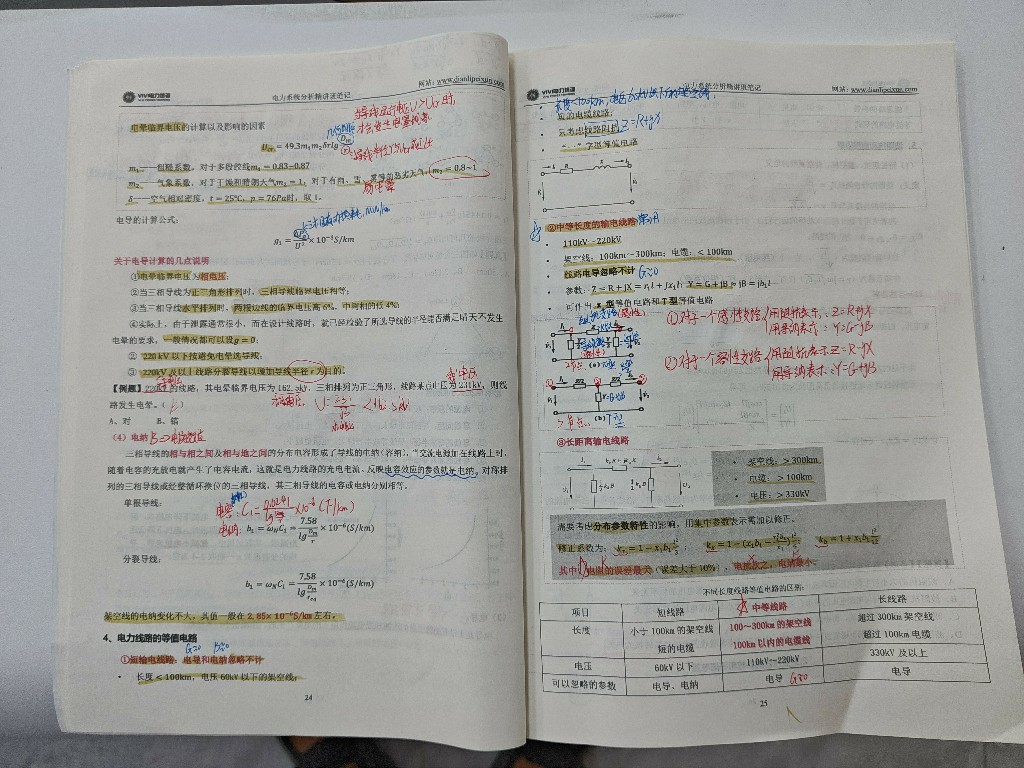 VIVI电力培训
电力系统分析精讲班笔记
网站: www.dianlipeixun.com
导线运行电压U>Ucr时
才会发生电晕
电晕临界电压的计算以及影响的因素
m₁——粗糙系数,对于多段绞线m₁=0.83~0.87
m₂——气象系数,对于干燥和晴朗大气m₂=1,对于有雨、雪、雾等的恶劣天气,m₂=0.8~1
易电晕
δ——空气相对密度,t=25℃,p=76Pa时,取1。
电导的计算公式:
关于电导计算的几点说明
①电晕临界电压为相电压;
②当三相导线为正三角形排列时,三相导线临界电压相等;
③当三相导线水平排列时,两根边线的临界电压高6%,中间相的低4%;
④实际上,由于泄露通常很小,而在设计线路时,就已经检验了所选导线的半径能否满足晴天不发生
电晕的要求,一般情况都可以设g=0;
② 220kV以下按避免电晕选导线,
③ 220kV及以上线路分裂导线以增加导线半径r为目的,
【例题】220kV的线路,其电晕临界电压为162.5kV,三相排列为正三角形,线路某点电压为231kV,则线
路发生电晕。( )
A、对 B、错
(4)电纳
三相导线的相与相之间及相与地之间的分布电容形成了导线的电纳(容纳)。"交流电源加在线路上时,
随着电容的充放电就产生了电容电流,这就是电力线路的充电电流。反映电容效应的参数就是电纳。对称排
列的三相导线或经整循环换位的三相导线,其三相导线的电容或电纳分别相等。
单根导线:
电容: C₁=0.0241/lg(Dm/r)×10⁻⁶(F/km)
电纳: b₁=ωNC₁=7.58/lg(Dm/r)×10⁻⁶(S/km)
分裂导线:
b₁=ωNC₁=7.58/lg(Dm/req)×10⁻⁶(S/km)
架空线的电纳变化不大,其值一般在2.85×10⁻⁶S/km左右。
4、电力线路的等值电路
G≈0 B≈0
①短输电线路:电导和电纳忽略不计
• 长度<100km,电压60kV以下的架空线;
24
VIVI电力培训
电力系统分析精讲班笔记
网站: www.dianlipeixun.com
• 短的电缆线路;
• 只考虑线路阻抗Z=R+jX
• "一"字型等值电路
②中等长度的输电线路 常用
• 110kV~220kV
• 架空线:100km~300km;电缆:<100km
• 线路电导忽略不计 G≈0
• 参数:Z=R+jX=r₁l+jx₁l;Y=G+jB=jB=jb₁l
• 可作出π型等值电路和T型等值电路
①对于一个感性支路 用阻抗表示:Z=R+jX
用导纳表示:Y=G-jB
②对于一个容性支路 用阻抗表示Z=R-jX
用导纳表示:Y=G+jB
(a)π型
(b)T型
③长距离输电线路
• 架空线:>300km
• 电缆:>100km
• 电压:>330kV
需要考虑分布参数特性的影响,用集中参数表示需加以修正。
其中,电阻的误差最大(误差大于10%),电抗次之,电纳最小。
不同长度线路等值电路的区别:
项目 短线路 中等线路 长线路
长度 小于100km的架空线 100~300km的架空线 超过300km架空线
短的电缆 100km以内的电缆线 超过100km电缆
电压 60kV以下 110kV~220kV 330kV及以上
可以忽略的参数 电导、电纳 电导 G≈0 电导
25